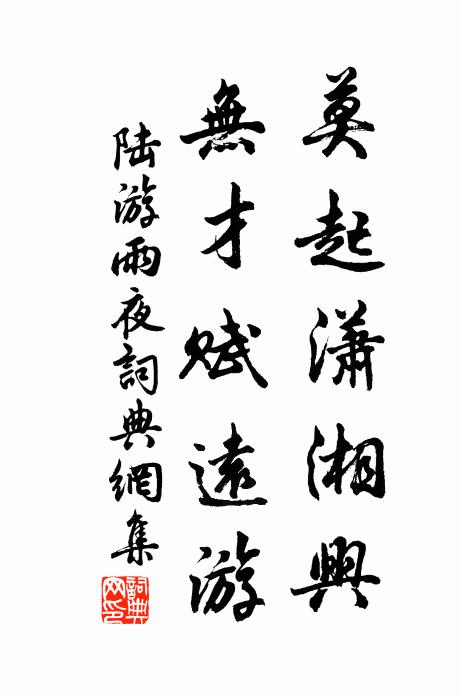 莫起瀟湘興
無才賦遠游
陆游雨夜詞典網集
詞典网印